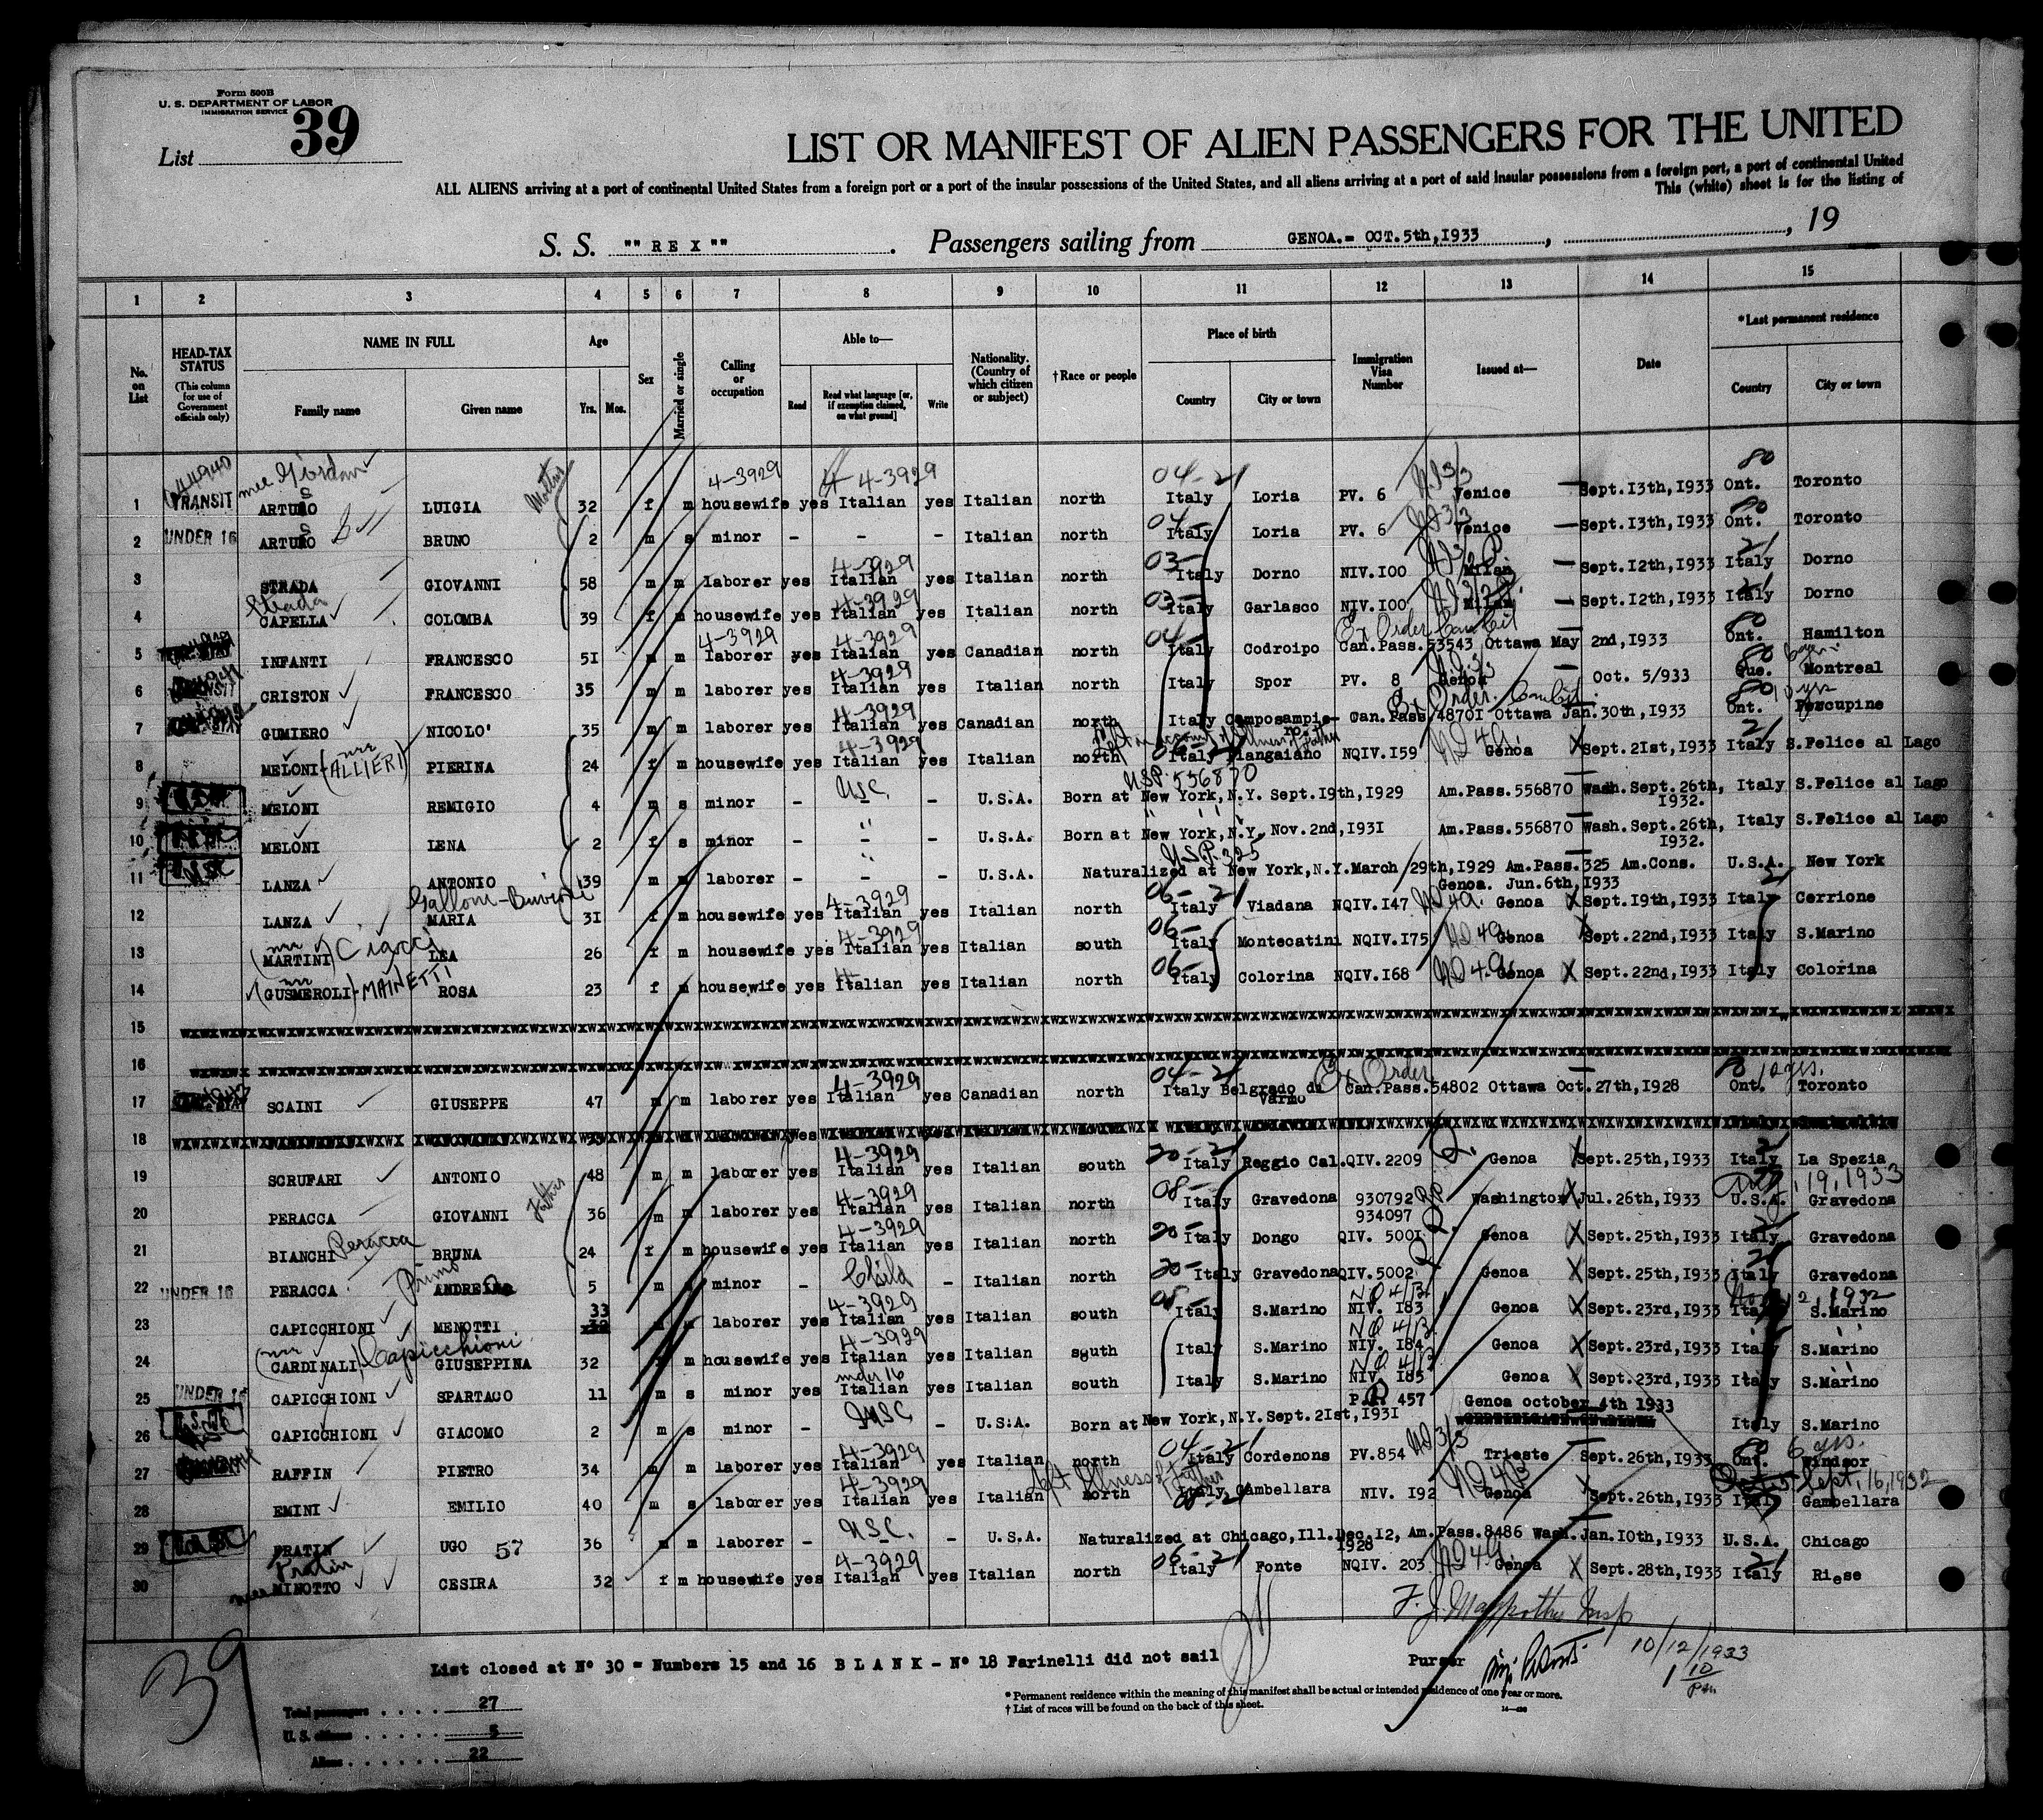 Form 500B
U. S. DEPARTMENT OF LABOR
IMMIGRATION SERVICE
List 39
LIST OR MANIFEST OF ALIEN PASSENGERS FOR THE UNITED
ALL ALIENS arriving at a port of continental United States from a foreign port or a port of the insular possessions of the United States, and all aliens arriving at a port of said insular possessions from a foreign port, a port of continental United
This (white) sheet is for the listing of
S. S. "" R E X "" . Passengers sailing from GENOA.= OCT.5th,1933 , , 19
1 2 3 4 5 6 7 8 9 10 11 12 13 14 15
No. on List
HEAD-TAX STATUS (This column for use of Government officials only)
NAME IN FULL
Family name Given name
Age
Yrs. Mos.
Sex
Married or single
Calling or occupation
Able to—
Read Read what language [or, if exemption claimed, on what ground] Write
Nationality. (Country of which citizen or subject)
† Race or people
Place of birth
Country City or town
Immigration Visa Number
Issued at—
Date
*Last permanent residence
Country City or town
4-3929 4-3929 04-21 80
1 TRANSIT LUIGIA 32 f m housewife yes Italian yes Italian north Italy Loria PV. 6 Venice Sept.13th,1933 Ont. Toronto
2 UNDER 16 BRUNO 2 m s minor - - - Italian north Italy Loria PV. 6 Venice Sept.13th,1933 Ont. Toronto
4-3929
3 STRADA GIOVANNI 58 m m laborer yes Italian yes Italian north Italy Dorno NIV.100 Milan Sept.12th,1933 Italy Dorno
Strada 4-3929
4 CAPELLA COLOMBA 39 f m housewife yes Italian yes Italian north Italy Garlasco NIV.100 Milan Sept.12th,1933 Italy Dorno
4-3929 4-3929
5 INFANTI FRANCESCO 51 m m laborer yes Italian yes Canadian north Italy Codroipo Can.Pass.53543 Ottawa May 2nd,1933 Ont. Hamilton
4-3929
6 CRISTON FRANCESCO 35 m m laborer yes Italian yes Italian north Italy Spor PV. 8 Genoa Oct. 5/933 Que. Montreal
4-3929
7 GUMIERO NICOLO' 35 m m laborer yes Italian yes Canadian north Italy Camposampie- ro Can.Pass.48701 Ottawa Jan.30th,1933 Ont. Porcupine
4-3929
8 MELONI (ALLIERI) PIERINA 24 f m housewife yes Italian yes Italian north Italy NQIV.159 Genoa Sept.21st,1933 Italy S.Felice al Lago
USC USP. 556870
9 MELONI REMIGIO 4 m s minor - - - U.S.A. Born at New York,N.Y. Sept.19th,1929 Am.Pass.556870 Wash.Sept.26th, 1932. Italy S.Felice al Lago
10 MELONI LENA 2 f s minor - - - U.S.A. Born at New York,N.Y. Nov.2nd,1931 Am.Pass.556870 Wash.Sept.26th, 1932. Italy S.Felice al Lago
U.S.P. 325
11 USC LANZA ANTONIO 39 m m laborer - - - U.S.A. Naturalized at New York,N.Y.March 29th,1929 Am.Pass.325 Am.Cons. Genoa. Jun.6th,1933 U.S.A. New York
4-3929 06-21
12 LANZA MARIA 31 f m housewife yes Italian yes Italian north Italy Viadana NQIV.147 Genoa Sept.19th,1933 Italy Cerrione
4-3929 06-
13 (MARTINI) Ciacci LEA 26 f m housewife yes Italian yes Italian south Italy Montecatini NQIV.175 Genoa Sept.22nd,1933 Italy S.Marino
14 (GUSMEROLI)-MAINETTI ROSA 23 f m housewife yes Italian yes Italian north Italy Colorina NQIV.168 Genoa Sept.22nd,1933 Italy Colorina
15
16
4-3929 04-21 Ex Order 10 yrs.
17 SCAINI GIUSEPPE 47 m m laborer yes Italian yes Canadian north Italy Belgrado di Varmo Can.Pass.54802 Ottawa Oct.27th,1928 Ont. Toronto
18
4-3929 20-21
19 SCRUFARI ANTONIO 48 m m laborer yes Italian yes Italian south Italy Reggio Cal. QIV.2209 Genoa Sept.25th,1933 Italy La Spezia
Father 4-3929 08- Aug. 19, 1933
20 PERACCA GIOVANNI 36 m m laborer yes Italian yes Italian north Italy Gravedona 930792 934097 Washington Jul.26th,1933 U.S.A. Gravedona
4-3929
21 BIANCHI Peracca BRUNA 24 f m housewife yes Italian yes Italian north Italy Dongo QIV. 5001 Genoa Sept.25th,1933 Italy Gravedona
Child
22 UNDER 16 PERACCA 5 m s minor - - Italian north Italy Gravedona QIV.5002 Genoa Sept.25th,1933 Italy Gravedona
4-3929
23 CAPICCHIONI MENOTTI 33 m m laborer yes Italian yes Italian south Italy S.Marino NIV. 183 Genoa Sept.23rd,1933 Italy S.Marino
4-3929
24 (CARDINALI) Capicchioni GIUSEPPINA 32 f m housewife yes Italian yes Italian south Italy S.Marino NIV. 184 Genoa Sept.23rd,1933 Italy S.Marino
under 16
25 UNDER 16 CAPICCHIONI SPARTACO 11 m s minor yes Italian yes Italian south Italy S.Marino NIV. 185 Genoa Sept.23rd,1933 Italy S.Marino
USC
26 CAPICCHIONI GIACOMO 2 m s minor - - U.S.A. Born at New York,N.Y.Sept.21st,1931 457 Genoa october 4th 1933 Italy S.Marino
4-3929 04-21 6 yrs.
27 RAFFIN PIETRO 34 m m laborer yes Italian yes Italian north Italy Cordenons PV.854 Trieste Sept.26th,1933 Ont. Windsor
4-3929 Sept. 16, 1932
28 EMINI EMILIO 40 m s laborer yes Italian yes Italian north Italy Gambellara NIV. 192 Genoa Sept.26th,1933 Italy Gambellara
USC.
29 PRATIN UGO 57 36 m m laborer - - - U.S.A. Naturalized at Chicago,Ill.Dec.12, 1928 Am.Pass.8486 Wash.Jan.10th,1933 U.S.A. Chicago
Pratin 4-3929 06-21
30 MINOTTO CESIRA 32 f m housewife yes Italian yes Italian north Italy Fonte NQIV. 203 Genoa Sept.28th,1933 Italy Riese
List closed at Nº 30 = Numbers 15 and 16 B L A N K - Nº 18 Farinelli did not sail
Purser
10/12/1933
1 10 Pm
39
* Permanent residence within the meaning of this manifest shall be actual or intended residence of one year or more.
† List of races will be found on the back of this sheet.
Total passengers . . . . 27
U. S. citizens . . . . . 5
Aliens . . . . . . 22